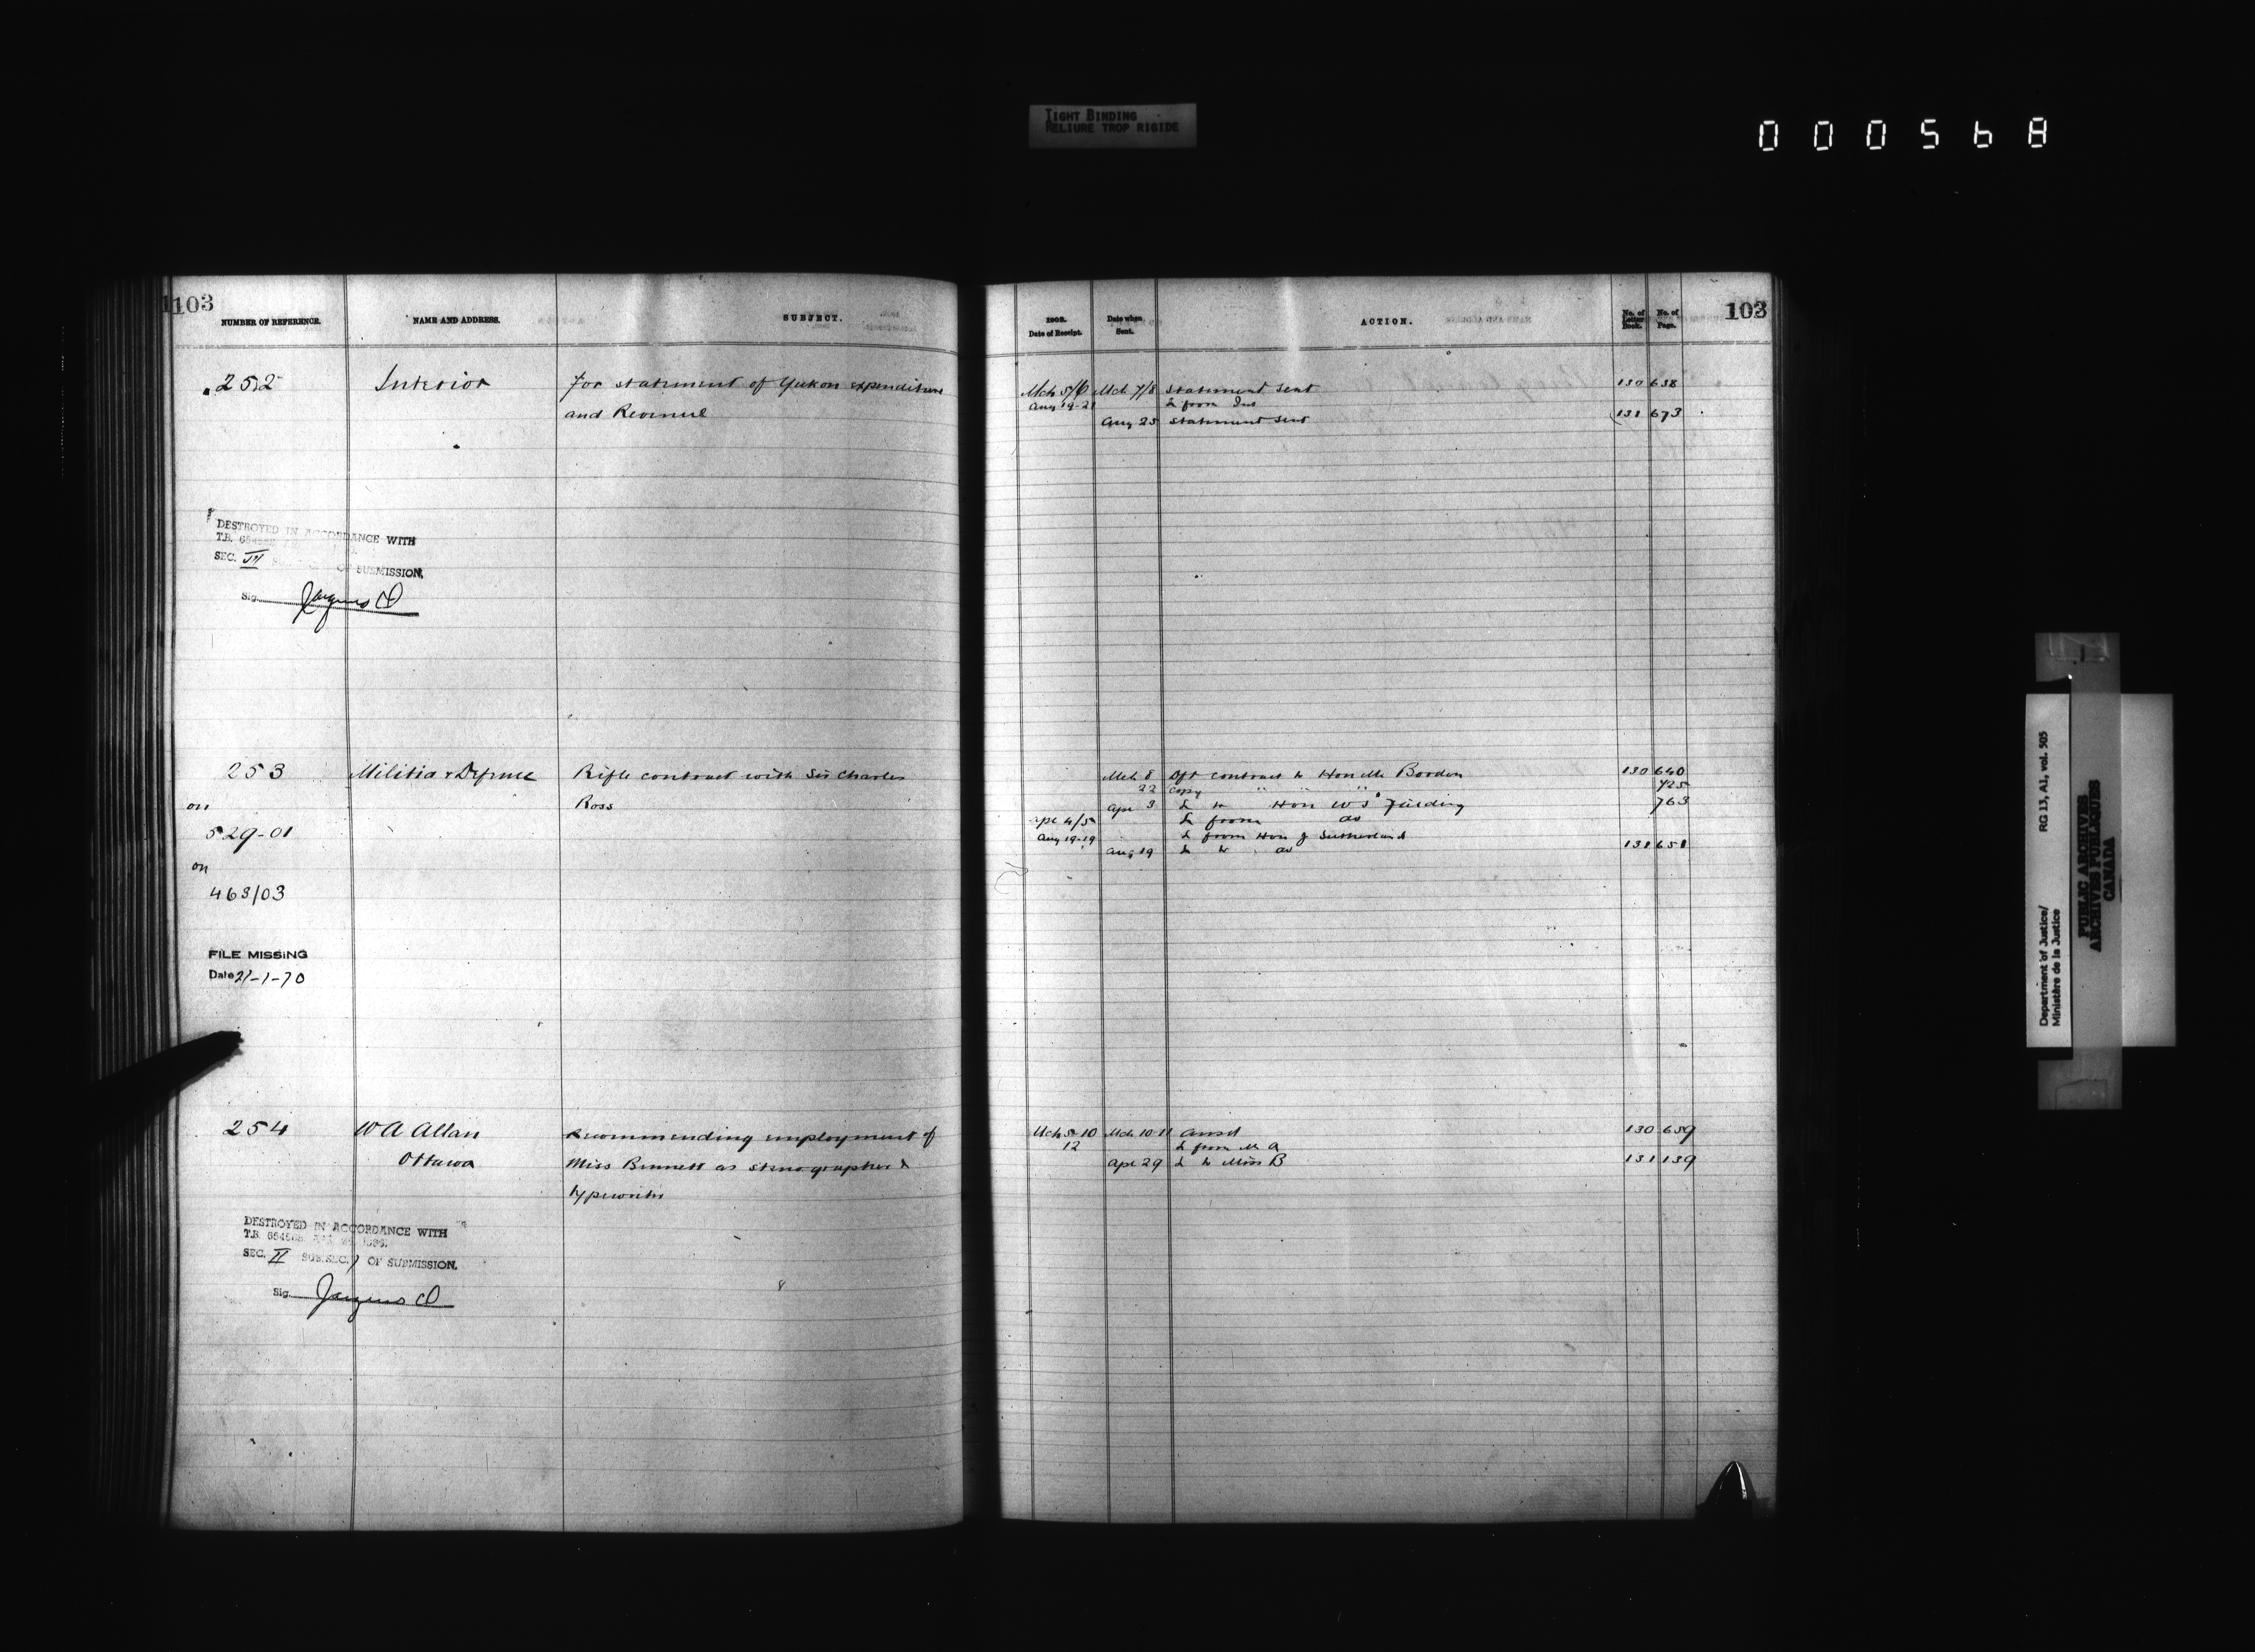 TIGHT BINDING
RELIURE TROP RIGIDE
000568
103
NUMBER OF REFERENCE. NAME AND ADDRESS. SUBJECT.
252 Interior For statement of Yukon expenditure
and Revenue
DESTROYED IN ACCORDANCE WITH
T.B.
SEC. VI OF SUBMISSION.
Sig.
253 Militia & Defence Rifle contract with Sir Charles
on Ross
529-01
on
463/03
FILE MISSING
Date 21-1-70
254 W A Allan Recommending employment of
Ottawa Miss Bennett as stenographer &
typewriter
DESTROYED IN ACCORDANCE WITH
T.B.
SEC. II SUB.SEC. 1 OF SUBMISSION.
Sig.
103
1902. Date of Receipt. Date when Sent. ACTION. No. of Letter Book. No. of Page.
Mch 5/6 Mch 7/8 Statement sent 130 638
Aug 19-21 L from Int
Aug 25 Statement sent 131 673
Mch 8 Dft contract to Hon Mr Borden 130 640
22 Copy " " " 725
Apr 3 L to Hon W S Fielding 763
Apr 4/5 L from do
Aug 19-19 L from Hon J Sutherland
Aug 19 L to do 131 651
Mch 8-10 Mch 10-11 Answd 130 659
12 L from Mr A
Apr 29 L to Miss B 131 139
Department of Justice/ RG 13, A1, vol. 505
Ministère de la Justice
PUBLIC ARCHIVES
ARCHIVES PUBLIQUES
CANADA